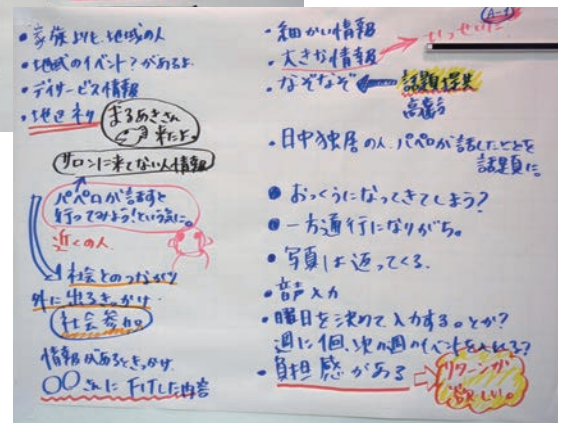 ・家族よりも、地域の人
・地域のイベント？があるよ。
・デイサービス情報
・地区ネタ
まるあきさん
来たよ。
サロンに来てない人情報
パペロが話すと
行ってみよう！という気に。
近くの人
社会とのつながり
外に出るきっかけ
社会参加
情報があるときっかけ
〇〇さんに FITした内容
A-1
・細かい情報
・大きな情報
いっせいに
・なぞなぞ
話題提供
高齢者
・日中独居の人、パペロが話したことを
話題に。
・おっくうになってきてしまう？
・一方通行になりがち。
・写真は返ってくる。
・音声入力
・曜日を決めて入力する。とか？
週に1回、次の週のイベントを入れる？
・負担感がある
リターンが
欲しい。